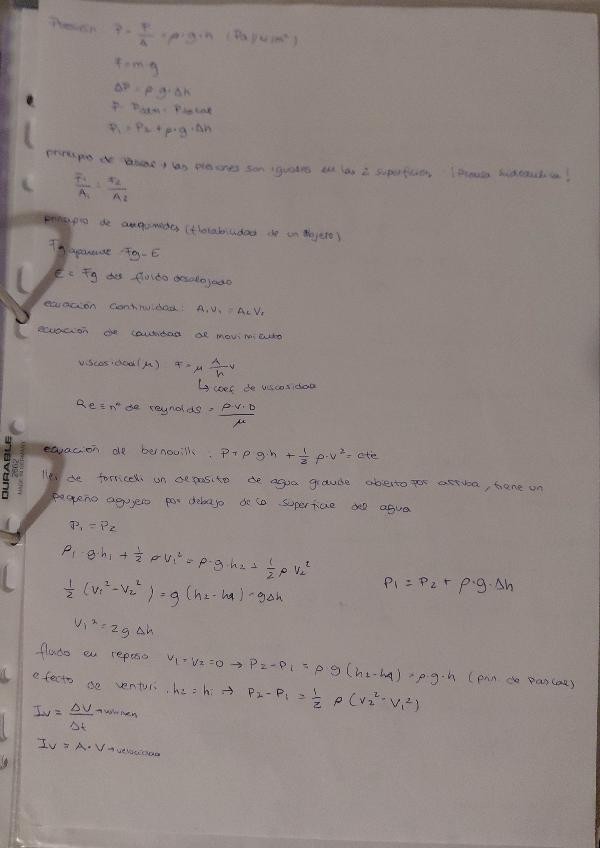 Presión P = F/A = ρ·g·h (Pa, N/m²)
F = m·g
ΔP = ρ·g·Δh
P Patm
P₁ = P₂ + ρ·g·Δh
principio de Pascal, las presiones son iguales en las 2 superficies ¡Prensa hidráulica!
F₁/A₁ = F₂/A₂
principio de arquímedes (flotabilidad de un objeto)
Fg aparente Fg - E
E = Fg del fluido desalojado
ecuación continuidad: A₁V₁ = A₂V₂
ecuación de cantidad de movimiento
viscosidad (μ) F = μ A/h v
↳ coef de viscosidad
Re = nº de reynolds = ρ·v·D/μ
ecuación de bernouilli: P + ρ·g·h + 1/2 ρ·v² = cte
de torriceli un deposito de agua grande abierto por arriba, tiene un
pequeño agujero por debajo de la superficie del agua
P₁ = P₂
ρ₁·g·h₁ + 1/2 ρV₁² = ρ·g·h₂ + 1/2 ρV₂²
1/2 (V₁² - V₂²) = g(h₂ - h₁) = gΔh
P₁ = P₂ + ρ·g·Δh
V₁² = 2gΔh
fluido en reposo V₁ = V₂ = 0 → P₂ - P₁ = ρ g (h₂ - h₁) = ρ·g·h (prin. de Pascal)
efecto de venturi. h₂ = h₁ → P₂ - P₁ = 1/2 ρ (V₂² - V₁²)
Iv = ΔV/Δt → volumen
Iv = A·V → velocidad
DURABLE
2902
MADE IN GERMANY